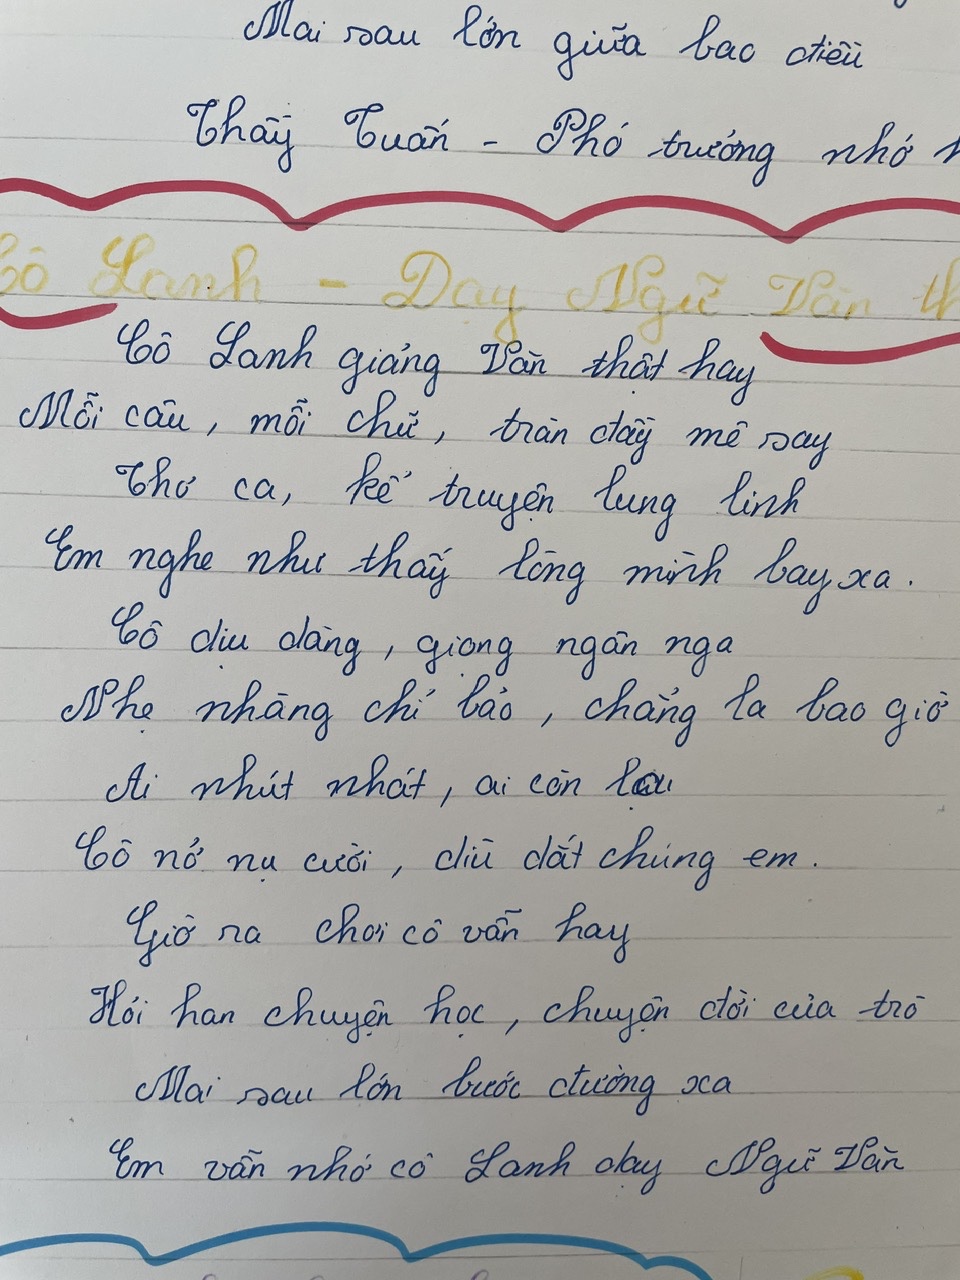 Mai sau lớn giữa bao điều
Thầy Tuấn - Phó trưởng nhớ
Cô Lanh - Dạy Ngữ Văn
Cô Lanh giảng Văn thật hay
Mỗi câu, mỗi chữ, tràn đầy mê say
Thơ ca, kể truyện lung linh
Em nghe như thấy lòng mình bay xa.
Cô dịu dàng, giọng ngân nga
Nhẹ nhàng chỉ bảo, chẳng la bao giờ
Ai nhút nhát, ai còn lâu
Cô nở nụ cười, dìu dắt chúng em.
Giờ ra chơi cô vẫn hay
Hỏi han chuyện học, chuyện đời của trò
Mai sau lớn bước đường xa
Em vẫn nhớ cô Lanh dạy Ngữ Văn